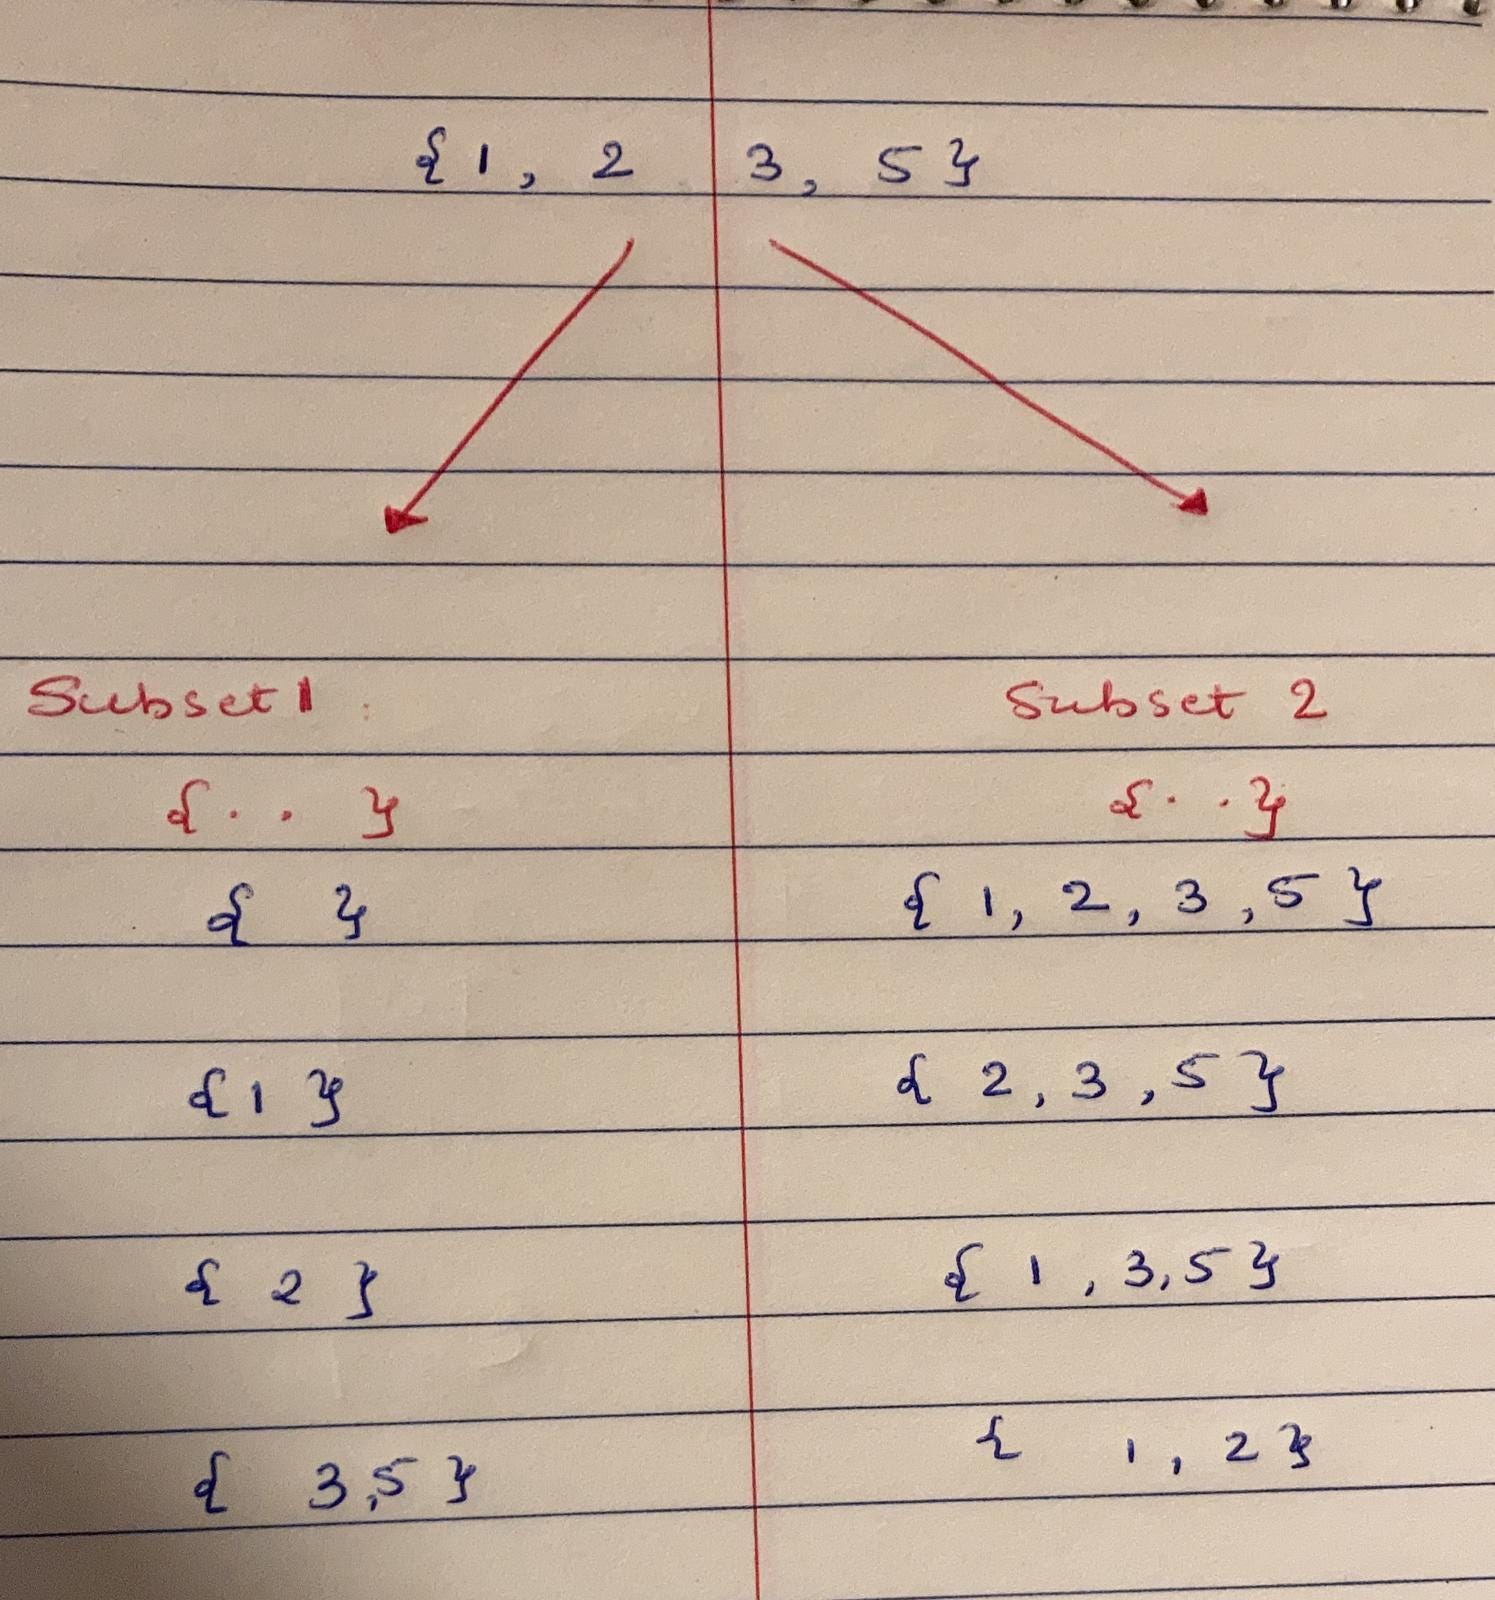 { 1 , 2 3 , 5 }
Subset 1 Subset 2
{ . . } { . . }
{ } { 1 , 2 , 3 , 5 }
{ 1 } { 2 , 3 , 5 }
{ 2 } { 1 , 3 , 5 }
{ 3 , 5 } { 1 , 2 }